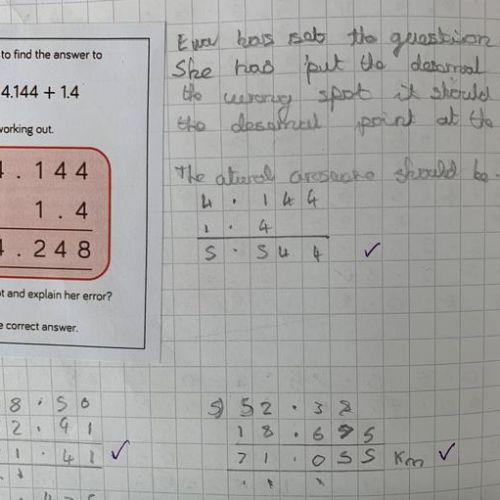 to find the answer to
4.144 + 1.4
working out.
4.144
1.4
4.248
t and explain her error?
e correct answer.
Eva has set the question
She has put the desamal
the wrong spot it should
the desamal point at the
The atural should be.
4.144
1.4
5.544 ✓
8.50
2.91
1.41 ✓
5) 52.38
18.675
71.055 Km ✓